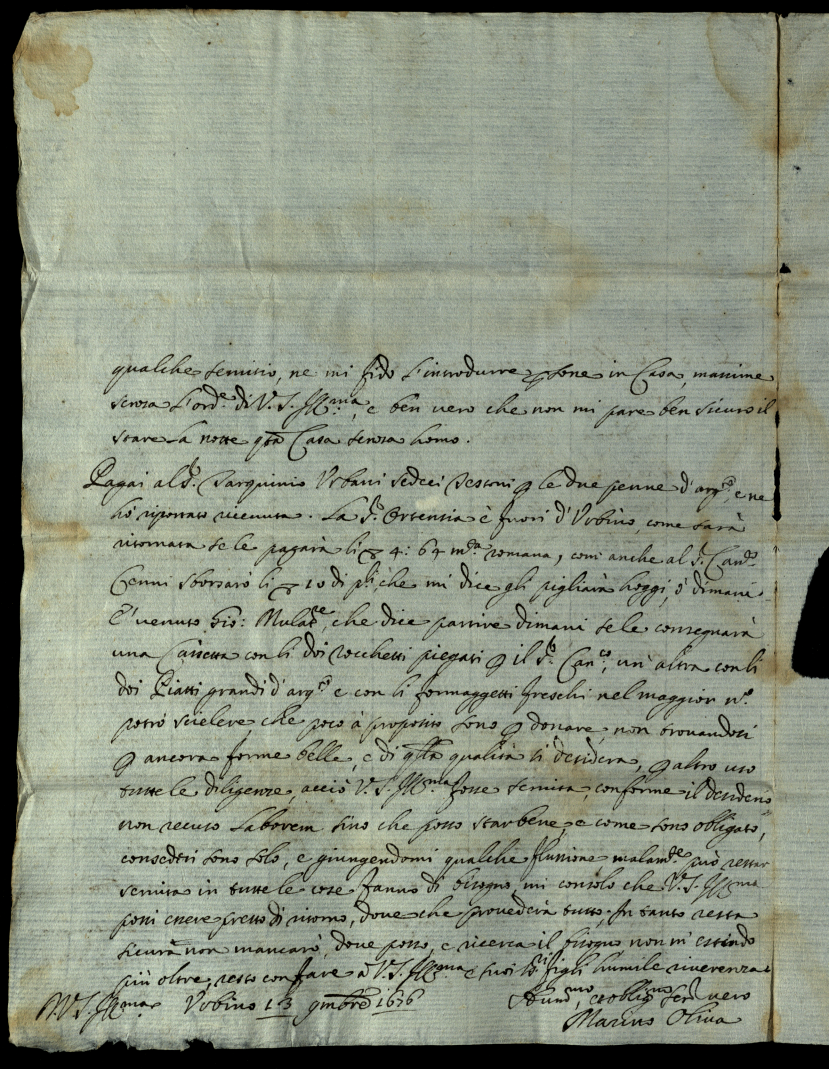 qualche servitio, ne mi fido l'introdurre psone in Casa, massime
senza l'ord.e di V. S. Ill.ma, e ben vero che non mi pare ben sicuro il
stare la notte qta Casa senza homo.
Pagai al S.r Tarquinio Urbani sedeci testoni p le due penne d'arg.to, e ne
hò riportato ricevuta. La S.ra Ortensia è fuori d'Urbino, come sarà
ritornata se le pagarà li 4: 64 m.ta romana, come anche al S.r Can.co
Cenni sborsarò li 10 di pli, che mi dice gli pigliarà hoggi, ò dimani
E' venuto Gio: Mulat.re, che dice partire dimani se le consegnarà
una Cassetta con li doi rocchetti piegati p il S.r Can.co, un' altra con li
doi Piatti grandi d'arg.to e con li formaggetti freschi nel maggior n.o
potrò scielere che poco à proposito sono p donare, non trovandosi
p ancora forme belle, e di qlla qualità si desidera, p altro uso
tutte le diligenze, acciò V. S. Ill.ma fosse servita, conforme il desiderio
non recuso laborem sino che posso star bene, e come sono obligato,
consedesi sono solo, e giungendomi qualche flussione malam.te può restar
servita in tutte le cose fanno di bisogno, mi consolo che V. S. Ill.ma
possi essere presto di ritorno, dove che provederà tutto, In tanto resta
sicura non mancarò, dove posso, e ricerca il bisogno non m' estendo
più oltre, resto con fare à V. S. Ill.ma e suoi SS.ri figli humile riverenza
D. V. S. Ill.ma Urbino 13 9mbre 1676 et oblig.mo Ser.r vero
Marino Oliva